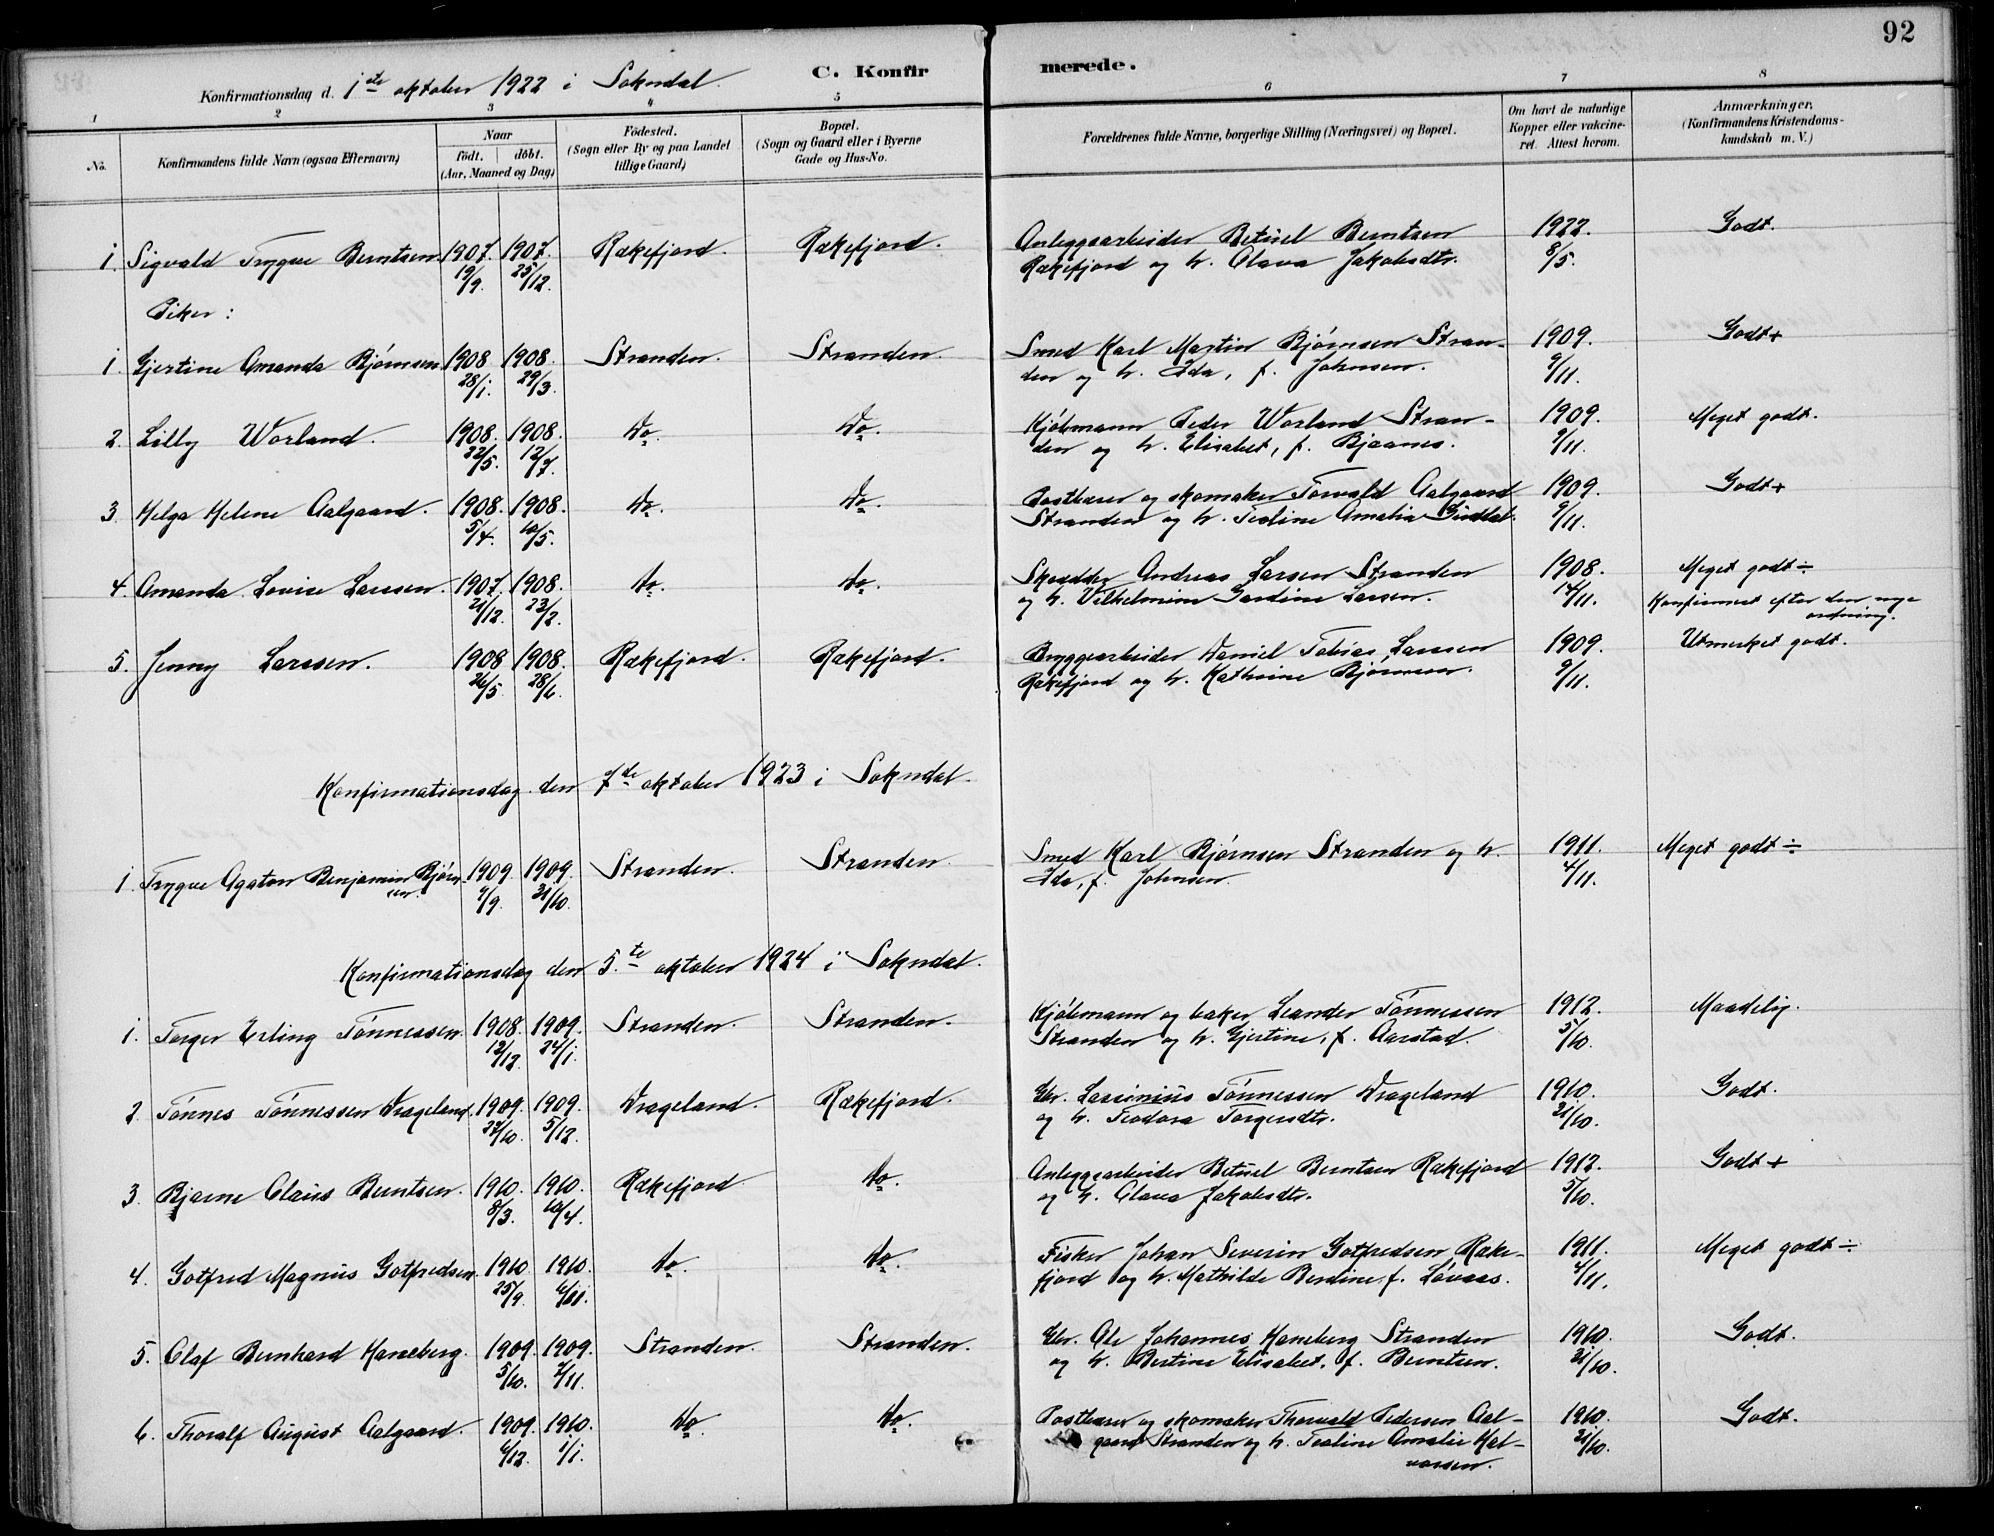 92
C. Konfir merede.
Konfirmationsdag d. 1ste oktober 1922 i Sokndal.
1 2 3 4 5 6 7 8
No. Konfirmandens fulde Navn (ogsaa Efternavn) Naar födt. döbt. (Aar, Maaned og Dag) Födested. (Sogn eller By og paa Landet tillige Gaard) Bopæl. (Sogn og Gaard eller i Byerne Gade og Hus-No. Forældrenes fulde Navne, borgerlige Stilling (Næringsvei) og Bopæl. Om havt de naturlige Kopper eller vakcineret. Attest herom. Anmærkninger. (Konfirmandens Kristendomskundskab m. V.)
1. Sigvald Trygve Berntsen 1907. 19/9. 1907. 25/12. Rækefjord Rækefjord. Anleggsarbeider Betuel Berntsen
Rækefjord og h. Olava Jakobsdtr. 1922. 8/5. Godt.
Piker:
1. Gjertine Amanda Bjørnsen 1908 28/1. 1908. 29/3. Stranden. Stranden. Smed Karl Martin Bjørnsen Stran-
den og h. Ida, f. Johnsen. 1909. 9/11. Godt+
2. Lilly Worland. 1908. 22/5. 1908. 12/7. Do. Do. Kjøbmann Peder Worland Stran-
den og h. Elisabet, f. Bjaanes. 1909. 9/11. Meget godt.
3. Helga Helene Aalgaard. 1908. 5/4. 1908. 10/5. Do. Do. Postbærer og skomaker Torvald Aalgaard
Stranden og h. Tealine Amalia 1909. 9/11. Godt+
4. Amanda Lovise Larssen. 1907. 21/12. 1908. 23/2. Do. Do. Skrædder Andreas Larsen Stranden
og h. Vilhelmine Gardine Larsen. 1908. 14/11. Meget godt÷
Konfirmert efter den nye
ordning.
5. Jenny Larssen. 1908 26/5. 1908. 28/6. Rækefjord. Rækefjord. Bryggearbeider Daniel Tobias Larssen
Rækefjord og h. Kathrine Bjørnsen. 1909. 9/11. Utmerket godt.
Konfirmationsdag den 7de oktober 1923 i Sokndal.
1. Trygve Agaton Benjamin Bjørn-
sen. 1909. 9/9. 1909. 31/10. Stranden. Stranden. Smed Karl Bjørnsen Stranden og h.
Ida, f. Johnsen. 1911. 4/11. Meget godt÷
Konfirmationsdag den 5.te oktober 1924 i Sokndal.
1. Torger Erling Tønnessen. 1908. 12/12. 1909. 24/1. Stranden. Stranden. Kjøbmann og baker Leander Tønnessen
Stranden og h. Gjertine, f. Aarstad. 1912. 5/10. Maadelig.
2. Tønnes Tønnessen Drageland. 1909. 27/10. 1909. 5/12. Drageland. Rækefjord. Gbr. Lassinius Tønnessen Drageland
og h. Teodora Torgersdtr. 1910. 21/10. Godt.
3. Bjarne Olaus Berntsen. 1910. 8/3. 1910. 10/4. Rækefjord. Do. Anleggsarbeider Betuel Berntsen Rækefjord
og h. Olava Jakobsdtr. 1912. 5/10. Godt+
4. Gotfred Magnus Gotfredsen. 1910 25/9. 1910. 6/11. Do. Do. Fisker Johan Severin Gotfredsen Ræke-
fjord og h. Mathilde Berdine, f. Løvaas. 1911. 4/11. Meget godt÷
5. Olaf Bernhard Haneberg. 1909. 5/10. 1909. 7/11. Stranden. Stranden. Gbr. Ole Johannes Haneberg Stranden
og h. Bertine Elisabet, f. Berntsen. 1910. 21/10. Godt.
6. Thoralf August Aalgaard. 1909. 6/12. 1910. 1/1. Do. Do. Postbærer og skomaker Thorvald Pedersen Aal-
gaard Stranden og h. Tealine Amalie Hal-
vorsen. 1910. 21/10. Godt.